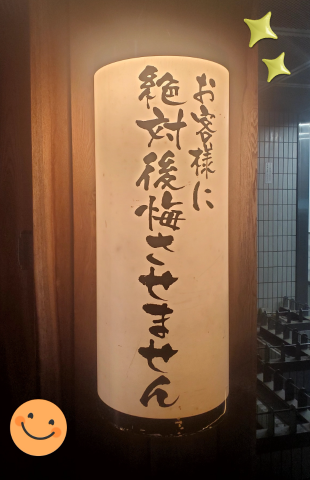 お客様に
絶対後悔させません